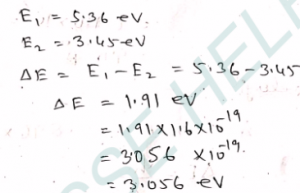 E₁ = 5.36 eV
E₂ = 3.45 eV
ΔE = E₁ - E₂ = 5.36 - 3.45
ΔE = 1.91 eV
= 1.91 x 1.6 x 10⁻¹⁹
= 3.056 x 10⁻¹⁹.
= 3.056 eV